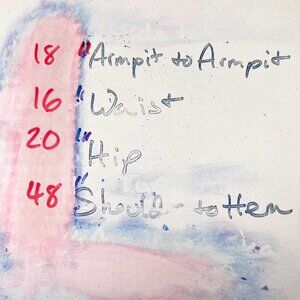 18 "Armpit to Armpit
16 "Waist
20 "Hip
48 "Should- to Hem